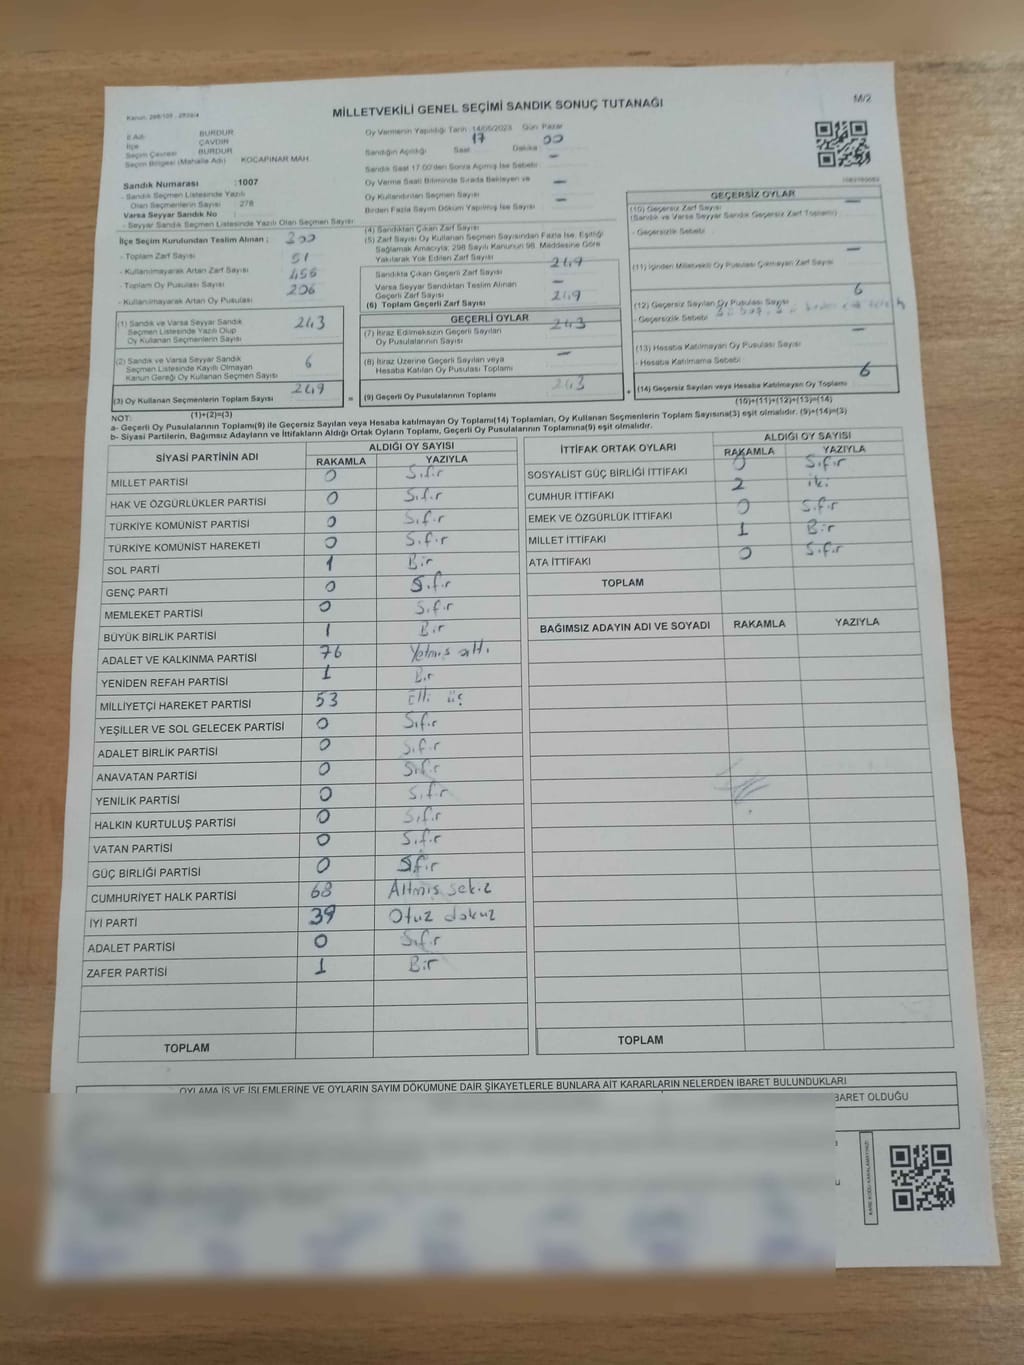 MİLLETVEKİLİ GENEL SEÇİMİ SANDIK SONUÇ TUTANAĞI
M/2
İl Adı BURDUR
İlçe ÇAVDIR
Seçim Çevresi BURDUR
Seçim Bölgesi (Mahalle Adı) KOCAPINAR MAH.
Sandık Numarası :1007
- Sandık Seçmen Listesinde Yazılı
Olan Seçmenlerin Sayısı 278
Varsa Seyyar Sandık No
- Seyyar Sandık Seçmen Listesinde Yazılı Olan Seçmen Sayısı
İlçe Seçim Kurulundan Teslim Alınan ; 300
- Toplam Zarf Sayısı
- Kullanılmayarak Artan Zarf Sayısı 51
- Toplam Oy Pusulası Sayısı 456
- Kullanılmayarak Artan Oy Pusulası 206
(1) Sandık ve Varsa Seyyar Sandık
Seçmen Listesinde Yazılı Olup
Oy Kullanan Seçmenlerin Sayısı 243
(2) Sandık ve Varsa Seyyar Sandık
Seçmen Listesinde Kayıtlı Olmayan
Kanun Gereği Oy Kullanan Seçmen Sayısı 6
(3) Oy Kullanan Seçmenlerin Toplam Sayısı 249
(1)+(2)=(3)
Oy Vermenin Yapıldığı Tarih 14/05/2023 Gün Pazar
Sandığın Açıldığı Saat 17 Dakika 00
Sandık Saat 17.00'den Sonra Açılmış İse Sebebi —
Oy Verme Saati Bitiminde Sırada Bekleyen ve
Oy Kullandırılan Seçmen Sayısı —
Birden Fazla Sayım Döküm Yapılmış İse Sayısı —
(4) Sandıktan Çıkan Zarf Sayısı
(5) Zarf Sayısı Oy Kullanan Seçmen Sayısından Fazla İse, Eşitliği
Sağlamak Amacıyla; 298 Sayılı Kanunun 98. Maddesine Göre
Yakılarak Yok Edilen Zarf Sayısı
Sandıkta Çıkan Geçerli Zarf Sayısı 249
Varsa Seyyar Sandıktan Teslim Alınan
Geçerli Zarf Sayısı —
(6) Toplam Geçerli Zarf Sayısı 249
GEÇERLİ OYLAR
(7) İtiraz Edilmeksizin Geçerli Sayılan
Oy Pusulalarının Sayısı 243
(8) İtiraz Üzerine Geçerli Sayılan veya
Hesaba Katılan Oy Pusulası Toplamı —
(9) Geçerli Oy Pusulalarının Toplamı 243
GEÇERSİZ OYLAR
(10) Geçersiz Zarf Sayısı —
(Sandık ve Varsa Seyyar Sandık Geçersiz Zarf Toplamı)
- Geçersizlik Sebebi
(11) İçinden Milletvekili Oy Pusulası Çıkmayan Zarf Sayısı —
(12) Geçersiz Sayılan Oy Pusulası Sayısı 6
- Geçersizlik Sebebi
(13) Hesaba Katılmayan Oy Pusulası Sayısı —
- Hesaba Katılmama Sebebi
(14) Geçersiz Sayılan veya Hesaba Katılmayan Oy Toplamı 6
(10)+(11)+(12)+(13)=(14)
NOT:
a- Geçerli Oy Pusulalarının Toplamı(9) ile Geçersiz Sayılan veya Hesaba katılmayan Oy Toplamı(14) Toplamları, Oy Kullanan Seçmenlerin Toplam Sayısına(3) eşit olmalıdır. (9)+(14)=(3)
b- Siyasi Partilerin, Bağımsız Adayların ve İttifakların Aldığı Ortak Oyların Toplamı, Geçerli Oy Pusulalarının Toplamına(9) eşit olmalıdır.
SİYASİ PARTİNİN ADI ALDIĞI OY SAYISI
RAKAMLA YAZIYLA
MİLLET PARTİSİ 0 Sıfır
HAK VE ÖZGÜRLÜKLER PARTİSİ 0 Sıfır
TÜRKİYE KOMÜNİST PARTİSİ 0 Sıfır
TÜRKİYE KOMÜNİST HAREKETİ 0 Sıfır
SOL PARTİ 1 Bir
GENÇ PARTİ 0 Sıfır
MEMLEKET PARTİSİ 0 Sıfır
BÜYÜK BİRLİK PARTİSİ 1 Bir
ADALET VE KALKINMA PARTİSİ 76 Yetmiş altı
YENİDEN REFAH PARTİSİ 1 Bir
MİLLİYETÇİ HAREKET PARTİSİ 53 Elli üç
YEŞİLLER VE SOL GELECEK PARTİSİ 0 Sıfır
ADALET BİRLİK PARTİSİ 0 Sıfır
ANAVATAN PARTİSİ 0 Sıfır
YENİLİK PARTİSİ 0 Sıfır
HALKIN KURTULUŞ PARTİSİ 0 Sıfır
VATAN PARTİSİ 0 Sıfır
GÜÇ BİRLİĞİ PARTİSİ 0 Sıfır
CUMHURİYET HALK PARTİSİ 68 Altmış sekiz
İYİ PARTİ 39 Otuz dokuz
ADALET PARTİSİ 0 Sıfır
ZAFER PARTİSİ 1 Bir
TOPLAM
İTTİFAK ORTAK OYLARI ALDIĞI OY SAYISI
RAKAMLA YAZIYLA
SOSYALİST GÜÇ BİRLİĞİ İTTİFAKI 0 Sıfır
CUMHUR İTTİFAKI 2 iki
EMEK VE ÖZGÜRLÜK İTTİFAKI 0 Sıfır
MİLLET İTTİFAKI 1 Bir
ATA İTTİFAKI 0 Sıfır
TOPLAM
BAĞIMSIZ ADAYIN ADI VE SOYADI RAKAMLA YAZIYLA
TOPLAM
OYLAMA İŞ VE İŞLEMLERİNE VE OYLARIN SAYIM DÖKÜMÜNE DAİR ŞİKAYETLERLE BUNLARA AİT KARARLARIN NELERDEN İBARET BULUNDUKLARI
BARET OLDUĞU